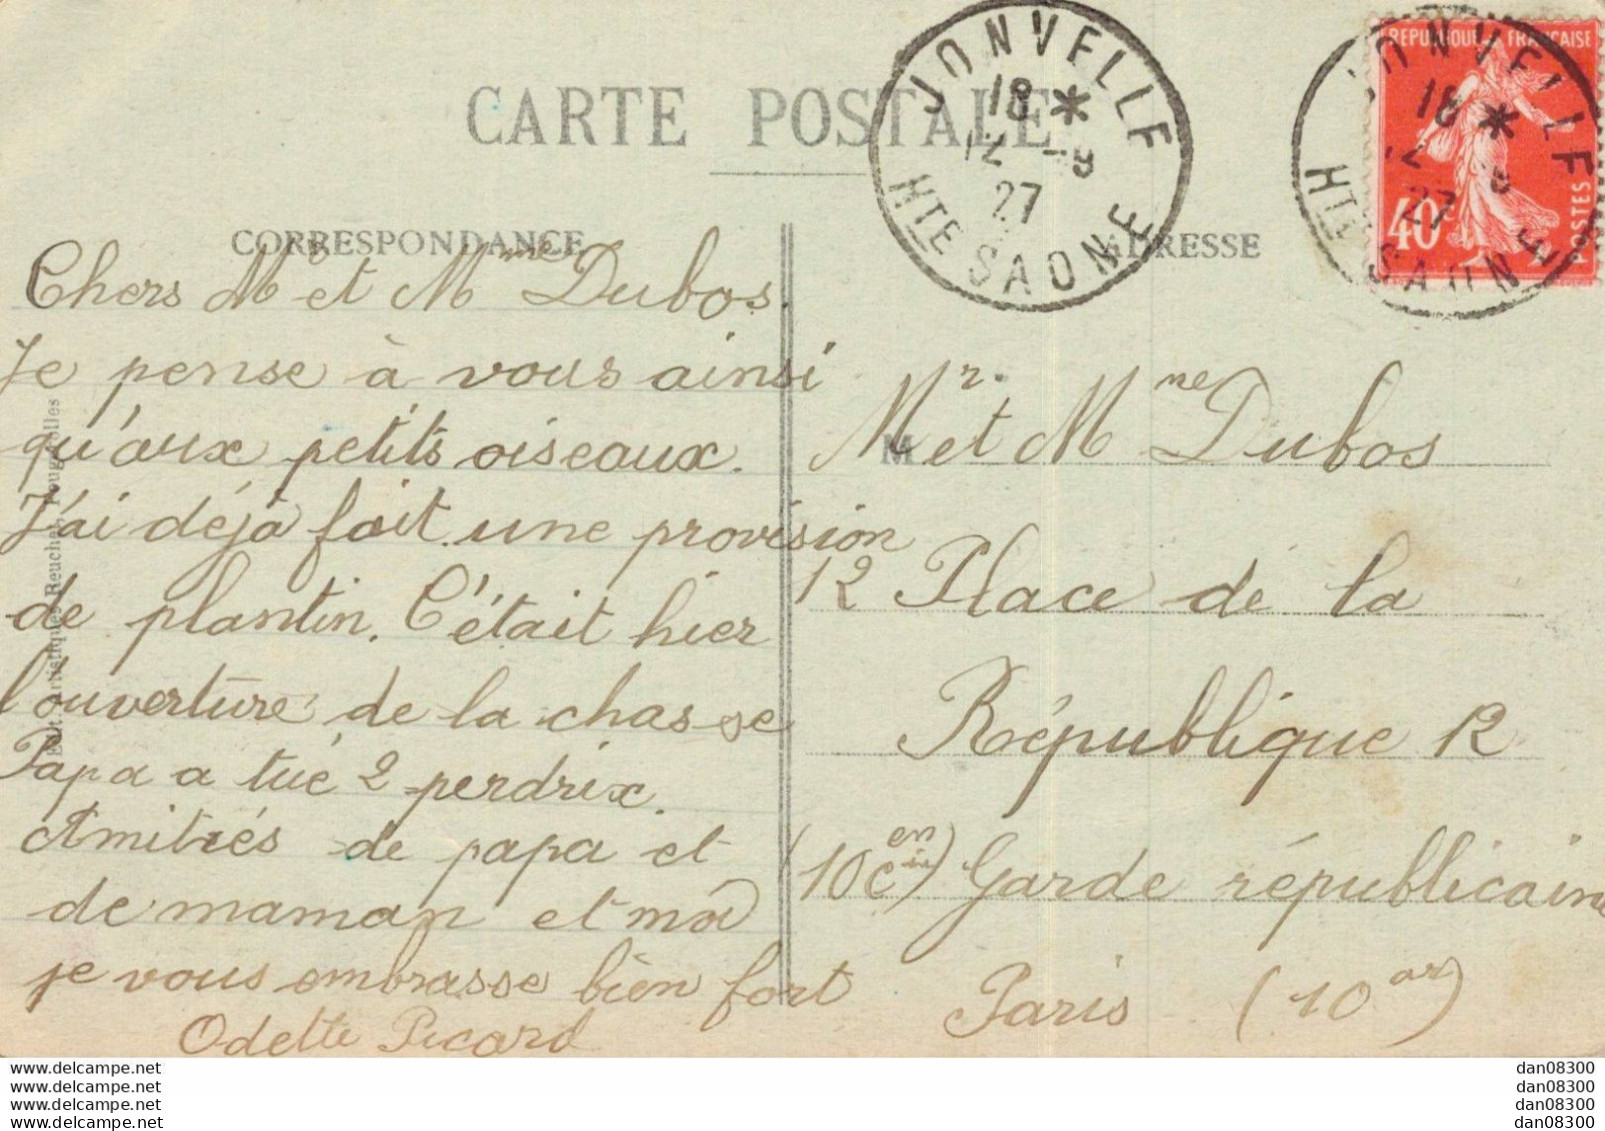 CARTE POSTALE
JONVELLE
18 *
12 -9
27
HTE SAONE
REPUBLIQUE FRANÇAISE
40c
POSTES
JONVELLE
18 *
12 -9
27
HTE SAONE
CORRESPONDANCE
ADRESSE
Chers Mr et Mme Dubos.
Je pense à vous ainsi
qu'aux petits oiseaux.
J'ai déjà fait une provision
de plantin. C'était hier
l'ouverture de la chasse
Papa a tué 2 perdrix.
Amitiés de papa et
de maman et moi
je vous embrasse bien fort
Odette Picard
M
Mr et Mme Dubos
12 Place de la
République 12
(10e en) Garde républicaine
Paris (10 ar)
Edit. Artistiques Reuchet, Rougerolles
www.delcampe.net
www.delcampe.net
www.delcampe.net
www.delcampe.net
dan08300
dan08300
dan08300
dan08300